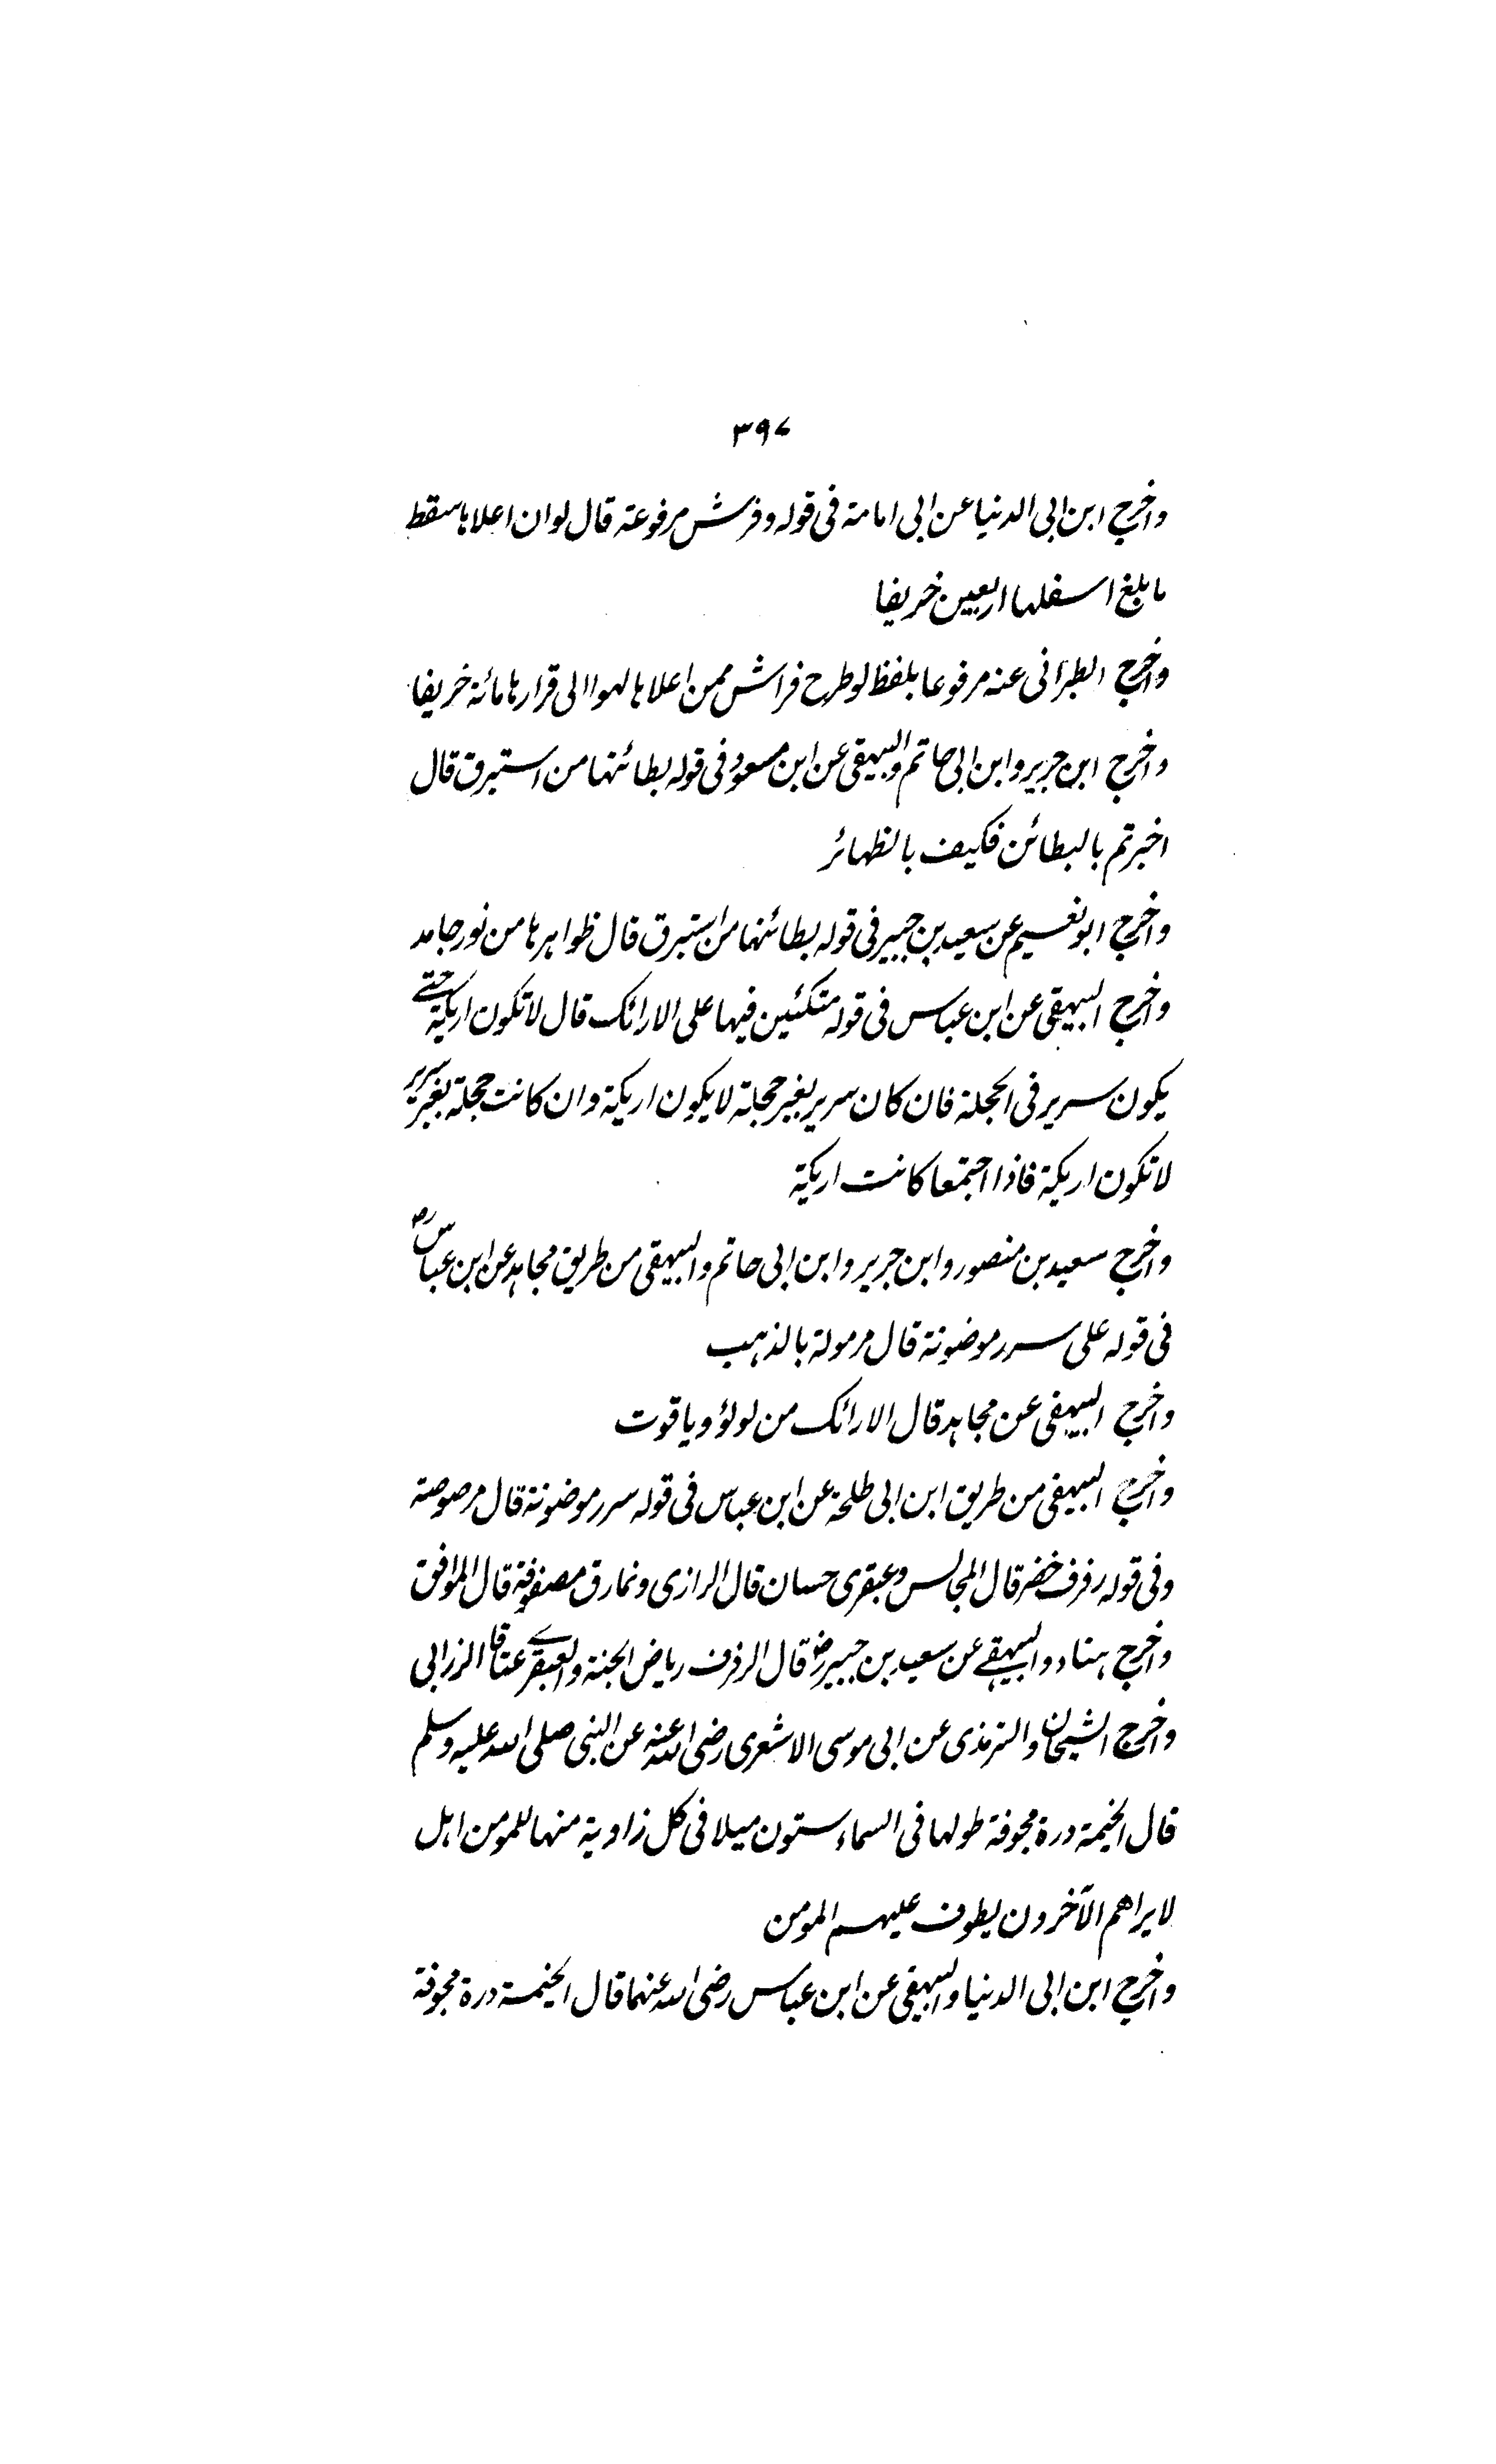 ۳۹۷
واخرج ابن ابى الدنيا عن ابى امامة فى قوله وفرش مرفوعة قال لو ان اعلاها سقط
ما بلغ اسفلها اربعين خريفا
واخرج الطبرانى عنه مرفوعا بلفظ لو طرح فراش من اعلاها لهوا الى قرارها مائة خريفا
واخرج ابن جرير وابن ابى حاتم والبيهقى عن ابن مسعود فى قوله بطائنها من استبرق قال
اخبرتم بالبطائن فكيف بالظهائر
واخرج ابو نعيم عن سعيد بن جبير فى قوله بطائنها من استبرق قال ظواهرها من نور جامد
واخرج البيهقى عن ابن عباس فى قوله متكئين فيها على الارائك قال لا تكون اريكة حتى
يكون سرير فى الحجلة فان كان سرير بغير حجلة لا يكون اريكة وان كانت حجلة بغير سرير
لا تكون اريكة فاذا اجتمعا كانت اريكة
واخرج سعيد بن منصور وابن جرير وابن ابى حاتم والبيهقى من طريق مجاهد عن ابن عباس رض
فى قوله على سرر موضونة قال مرمولة بالذهب
واخرج البيهقى عن مجاهد قال الارائك من لولؤ وياقوت
واخرج البيهقى من طريق ابن ابى طلحة عن ابن عباس فى قوله سرر موضونة قال مرصوصة
وفى قوله رفرف خضر قال المجالس وعبقرى حسان قال الرازى ونمارق مصفوفة قال المرافق
واخرج هناد والبيهقے عن سعيد بن جبير رض قال الرفرف رياض الجنة والعبقرے عتاق الزرابى
واخرج الشيخان والترمذى عن ابى موسى الاشعرى رضى الله عنه عن النبى صلى الله عليه وسلم
قال الخيمة درة مجوفة طولها فى السماء ستون ميلا فى كل زاوية منها للمومن اهل
لا يراهم الآخرون يطوف عليهم المومن
واخرج ابن ابى الدنيا والبيهقى عن ابن عباس رضى الله عنهما قال الخيمة درة مجوفة